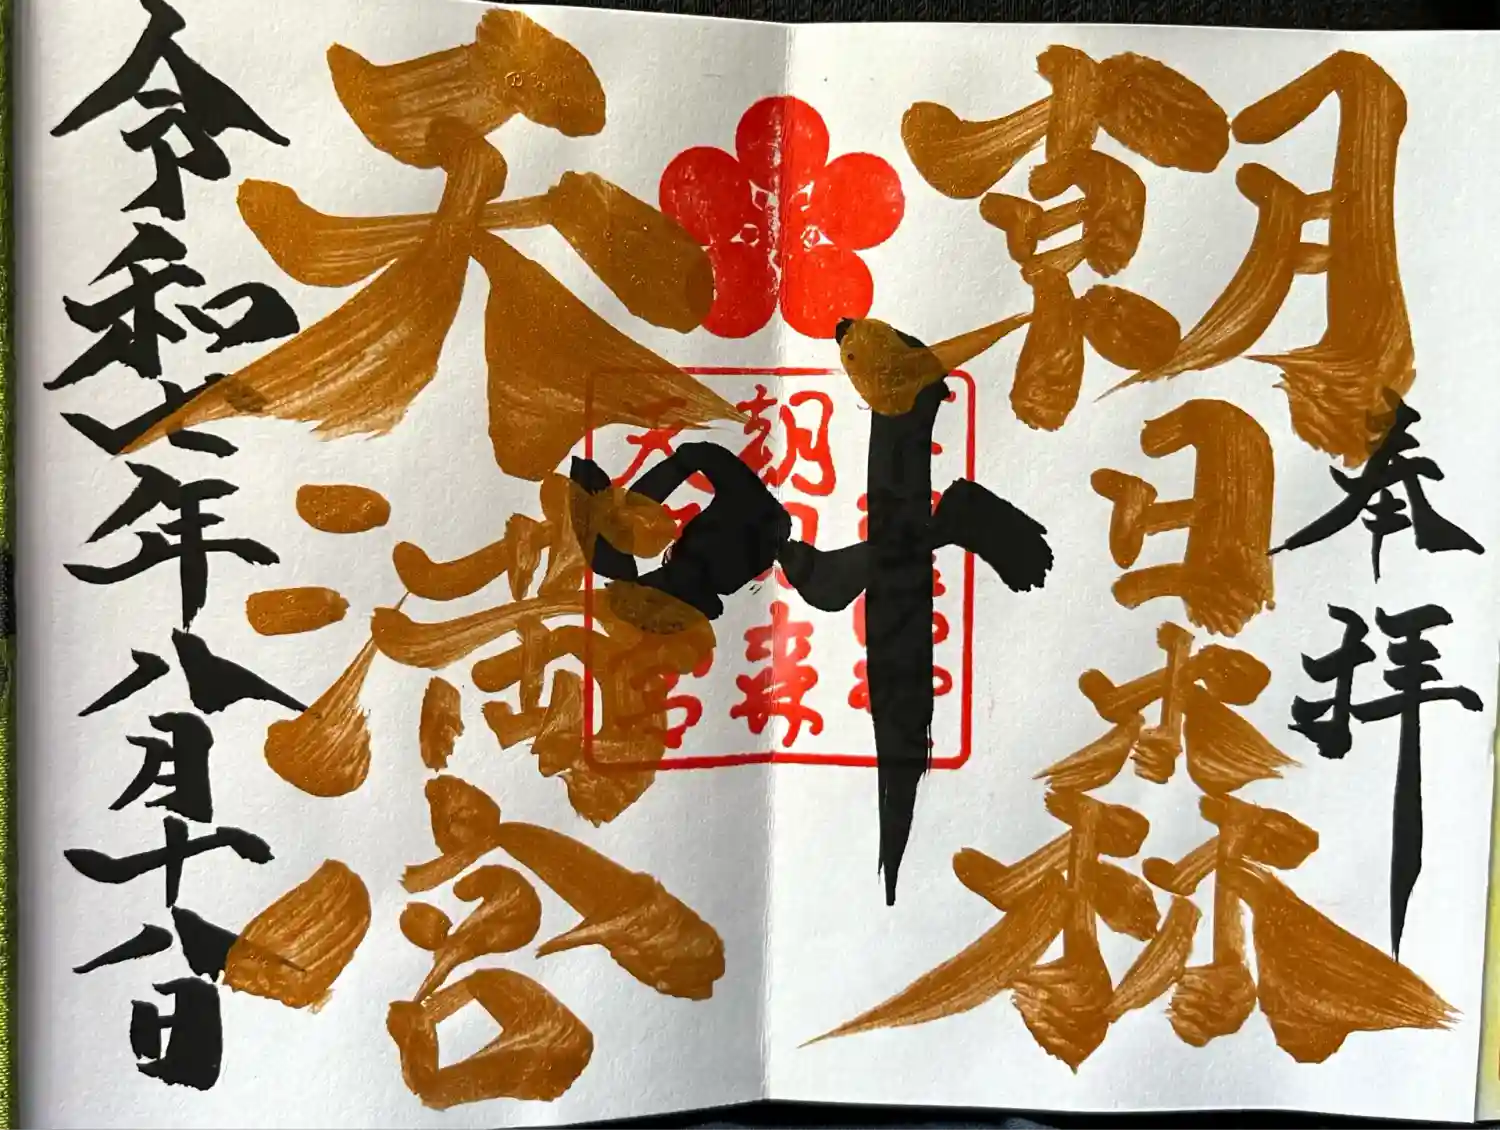 奉拝
朝日森
叶
天満宮
令和七年八月十八日
朝日森
天満宮